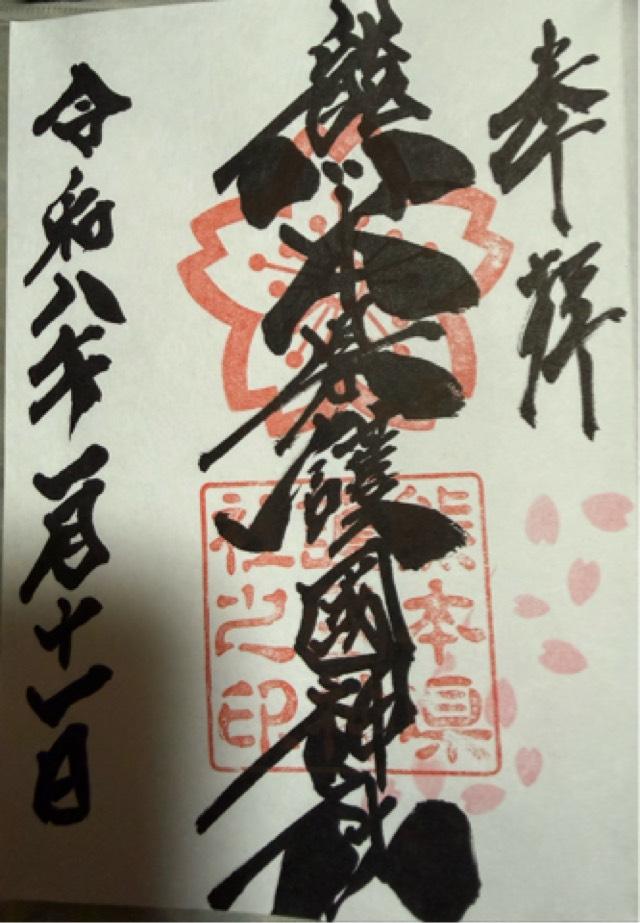 奉拝
熊本県護國神社
熊本県
護國神
社之印
令和八年一月十一日